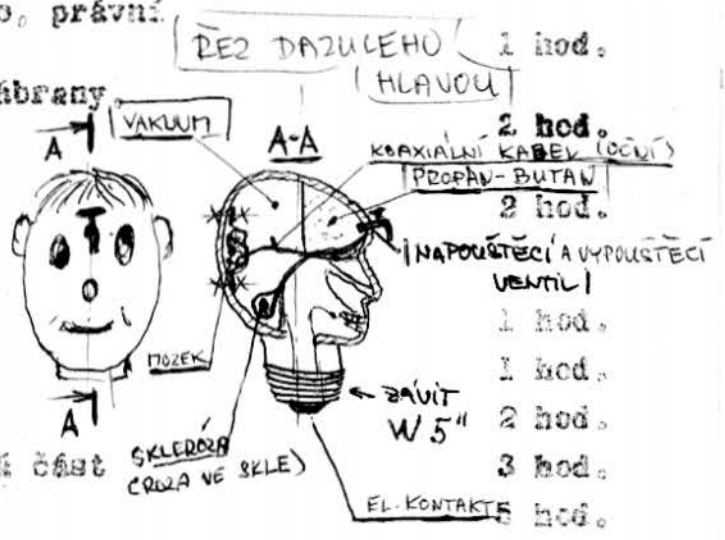 o. právní
ŘEZ DAZULEHO
1 hod.
HLAVOU
ábrany
2 hod.
A
VAKUUM
A-A
KOAXIÁLNÍ KABEL (OČNÍ)
PROPAN-BUTAN
2 hod.
NAPOUŠTĚCÍ A VYPOUŠTĚCÍ
VENTIL
1 hod.
MOZEK
1 hod.
ZÁVIT
W 5"
A
2 hod.
část
SKLERÓZA
(ROZA VE SKLE)
3 hod.
EL. KONTAKT
5 hod.